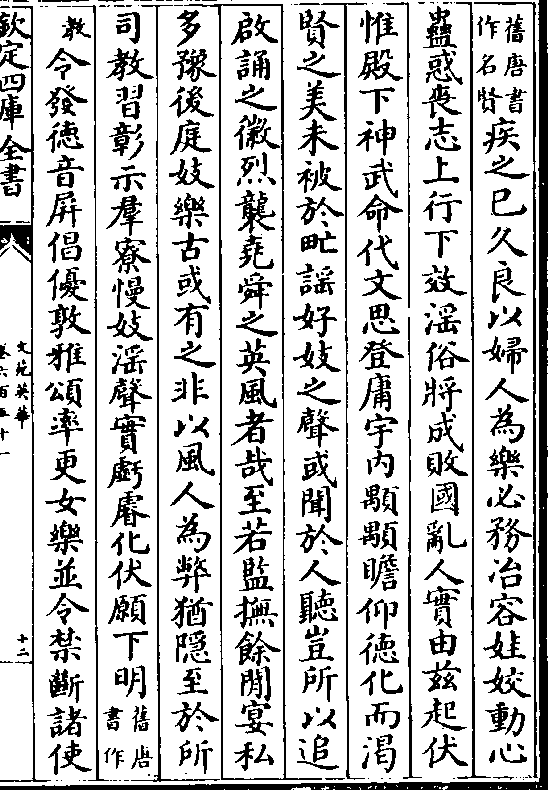 舊唐書
作名賢
疾之已久良以婦人為樂必務冶容娃姣動心
蠱惑喪志上行下效淫俗將成敗國亂人實由茲起伏
惟殿下神武命代文思登庸宇内顒顒瞻仰徳化而渴
賢之美未被於甿謡好妓之聲或聞於人聽豈所以追
啟誦之徽烈襲堯舜之英風者哉至若監撫餘閒宴私
多豫後庭妓樂古或有之非以風人為弊猶隠至於所
司教習彰示羣寮慢妓淫聲實虧睿化伏願下明
舊唐
書作
教
令發徳音屏倡優敦雅頌率更女樂並令禁斷諸使
欽定四庫全書
文苑英華
卷六百五十一
十二